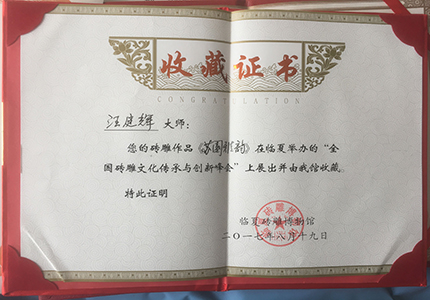 收藏证书
CONGRATULATION
汪建辉 大师:
您的砖雕作品《苏园雅韵》在临夏举办的“全
国砖雕文化传承与创新峰会”上展出并由我馆收藏。
特此证明
临夏砖雕博物馆
二〇一七年八月十九日